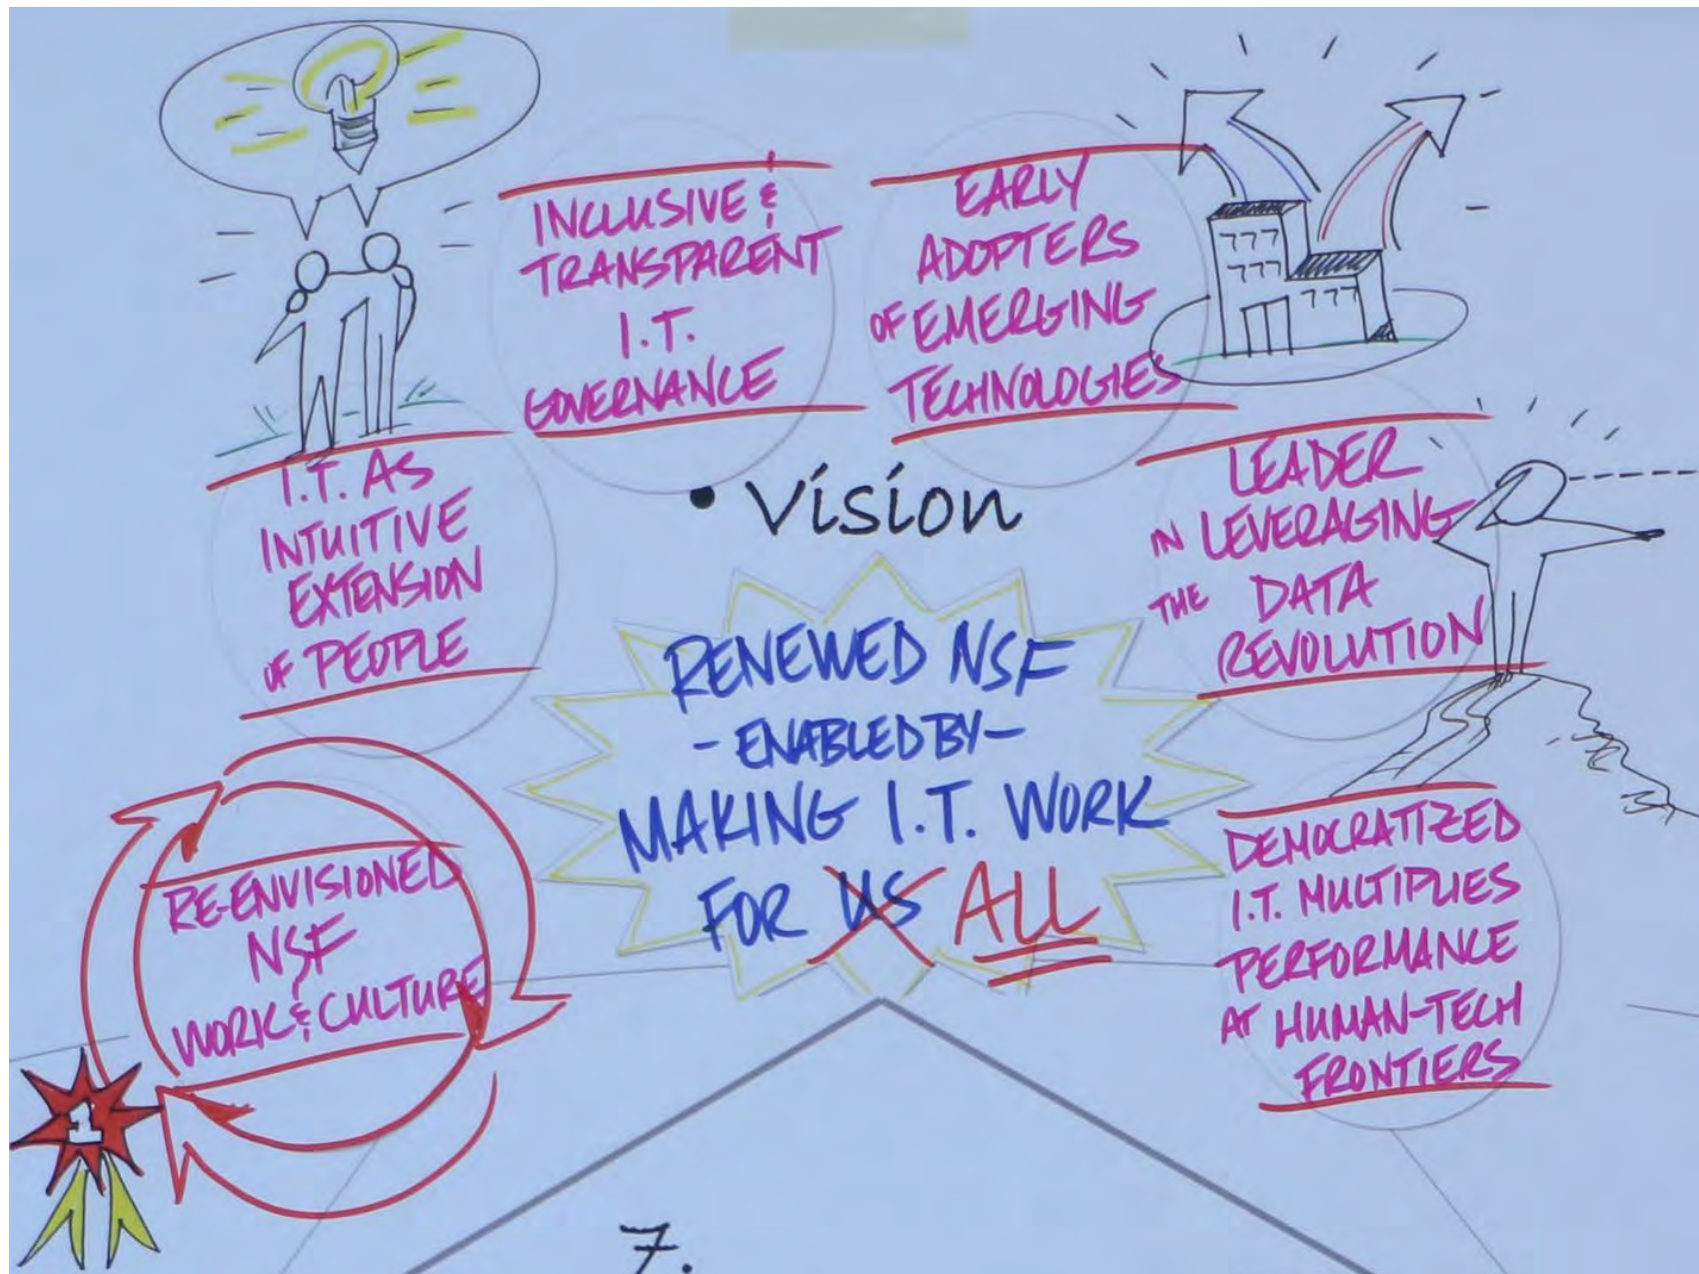 INCLUSIVE &
TRANSPARENT
I.T.
GOVERNANCE
EARLY
ADOPTERS
OF EMERGING
TECHNOLOGIES
I.T. AS
INTUITIVE
EXTENSION
OF PEOPLE
• Vision
LEADER
IN LEVERAGING
THE DATA
REVOLUTION
RENEWED NSF
- ENABLED BY -
MAKING I.T. WORK
FOR US ALL
RE-ENVISIONED
NSF
WORK & CULTURE
DEMOCRATIZED
I.T. MULTIPLIES
PERFORMANCE
AT HUMAN-TECH
FRONTIERS
1
7.